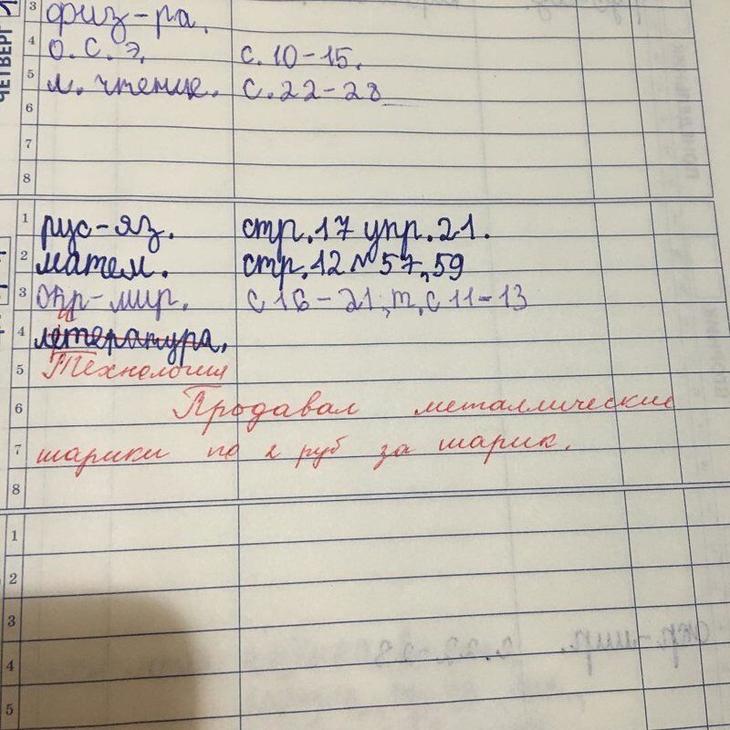 ЧЕТВЕРГ
3 физ-ра.
4 о.с.э. с.10-15.
5 л. чтение. с.22-28
6
7
8
1 рус-яз. стр.17 упр.21.
2 матем. стр.12 №57,59
3 окр-мир. с 16-21, т, с 11-13
4 литература.
5 Технология
6 Продавал металлические
7 шарики по 2 руб за шарик.
8
1
2
3
4
5